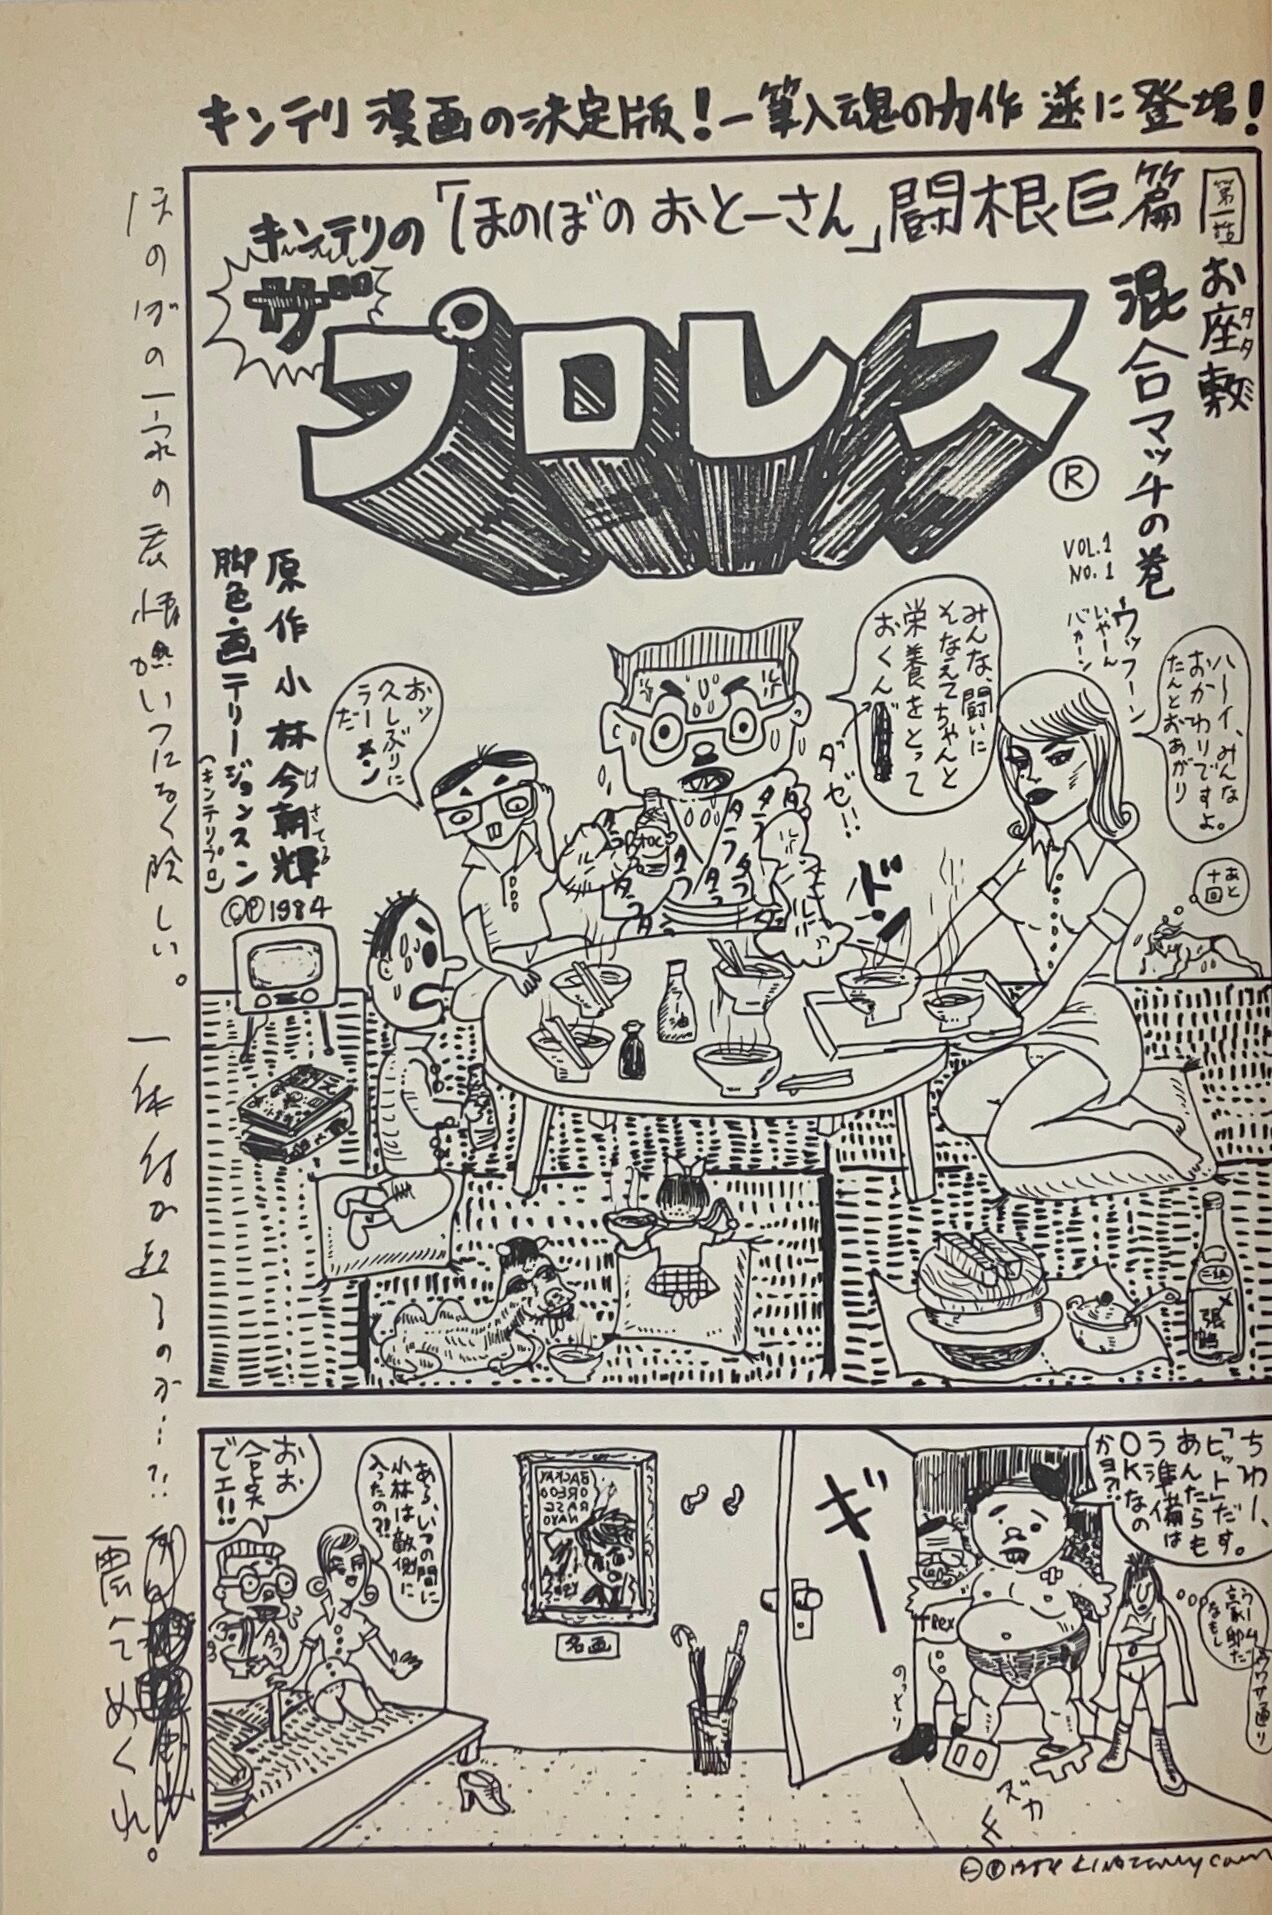 キンテリ漫画の決定版！一筆入魂の力作 遂に登場！
キンテリの「ほのぼのおとーさん」闘根巨篇
ザ
プロレス
®
第一話
お座敷
タタミ
混合マッチの巻
VOL.1
NO.1
ウッフーン
いやーん
バカーン
原作 小林今朝輝
げさてる
脚色・画 テリー・ジョンスン
(キンテリプロ)
©℗1984
ハーイ、みんな
おかわりですよ。
たんとおあがり
みんな、闘いに
そなえてちゃんと
栄養をとって
おくん
ダゼ!!
おッ
久しぶりに
ラーメン
だ
あと
十回
ドン
ほのぼの一家の表情がいつになく険しい。一体何が起るのか…?!
震えてめくれ。
ちわー、
「ピット」だす。
あんたらも
う準備は
OKなの
かヨ?!
うーム
豪邸だ
なもし
ウワサ通り
ギーー
T・Rex
のっそり
ズカ
名画
あら、いつの間に
小林は敵側に
入ったの?!
おお
合点
でエ!!